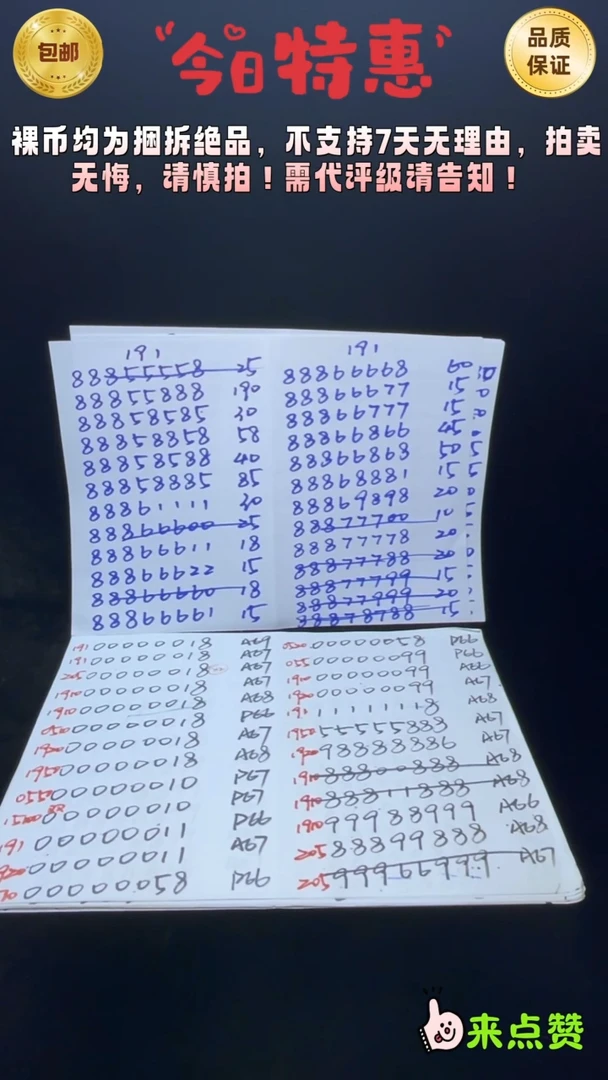 包邮
今日特惠
品质
保证
裸币均为捆拆绝品，不支持7天无理由，拍卖
无悔，请慎拍！需代评级请告知！
191
88855558 25
88855888 190
88858585 30
88858858 58
88858588 40
88858885 85
88861111 30
88866600 25
88866611 18
88866622 15
88866660 18
88866661 15
191
88866668
88866677
88866777
88866866
88866868
88868881
88869898 20
88877700 10
88877778 20
88877788 20
88877799 15
88877999 20
88878788 15
191 00000018 A69
191 00000018 A67
205 00000018 A67
1910 0000018 A67
1910 0000018 A68
0000018 P66
1920 0000018 A67
1950 0000018 A68
0550 0000010 P67
0000010 P67
191 00000011 P66
0000011 A67
0000058 P66
0520 0000058 P66
055 0000099 P66
1910 0000099 A66
1920 0000099 A67
191 11111118 A68
1950 55555888 A67
1920 98888886 A67
1910 88800888 A68
1910 88811888 A68
1910 99988999 A66
205 88899888 A68
205 99966999 A67
来点赞